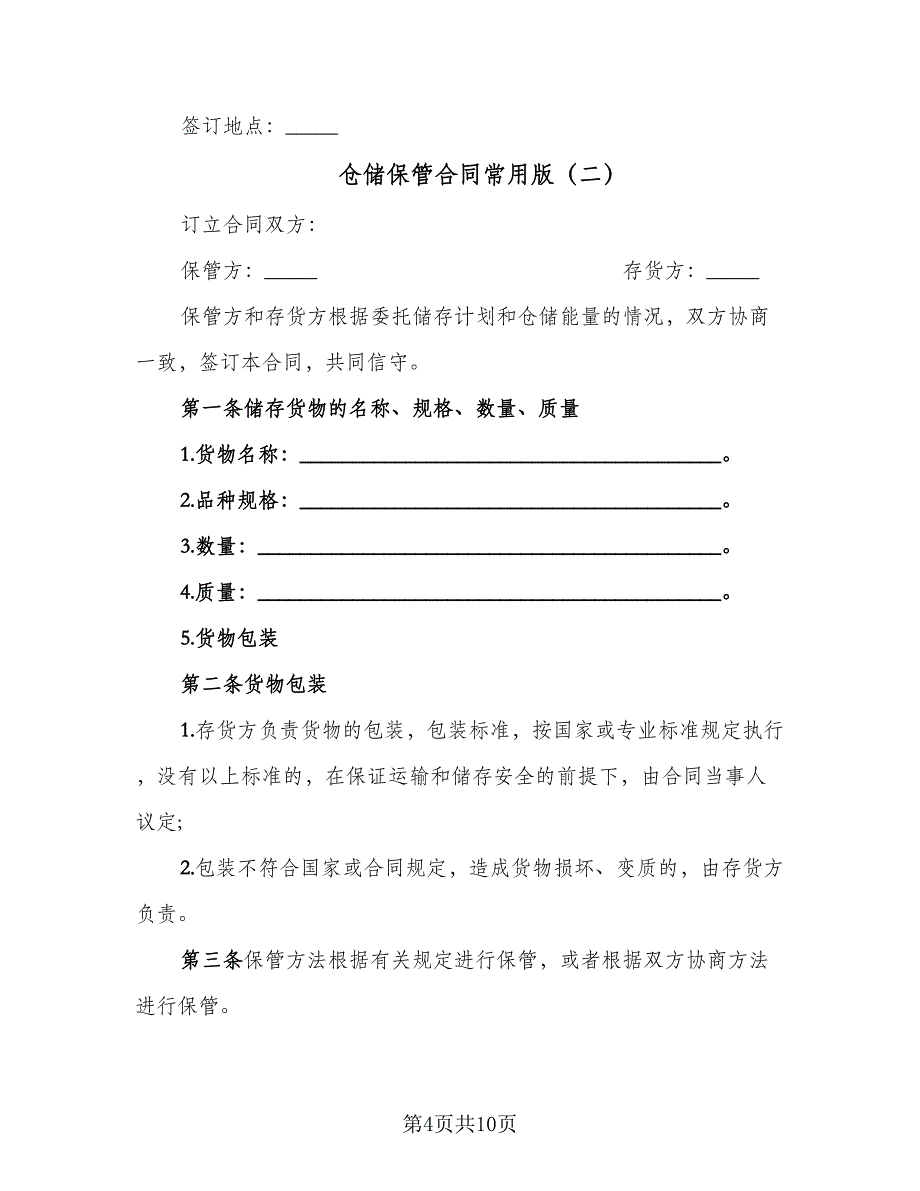 签订地点：_____
仓储保管合同常用版（二）
订立合同双方：
保管方：_____ 存货方：_____
保管方和存货方根据委托储存计划和仓储能量的情况，双方协商
一致，签订本合同，共同信守。
第一条储存货物的名称、规格、数量、质量
1.货物名称：________________________________________。
2.品种规格：________________________________________。
3.数量：____________________________________________。
4.质量：____________________________________________。
5.货物包装
第二条货物包装
1.存货方负责货物的包装，包装标准，按国家或专业标准规定执行
，没有以上标准的，在保证运输和储存安全的前提下，由合同当事人
议定;
2.包装不符合国家或合同规定，造成货物损坏、变质的，由存货方
负责。
第三条保管方法根据有关规定进行保管，或者根据双方协商方法
进行保管。
第4页共10页